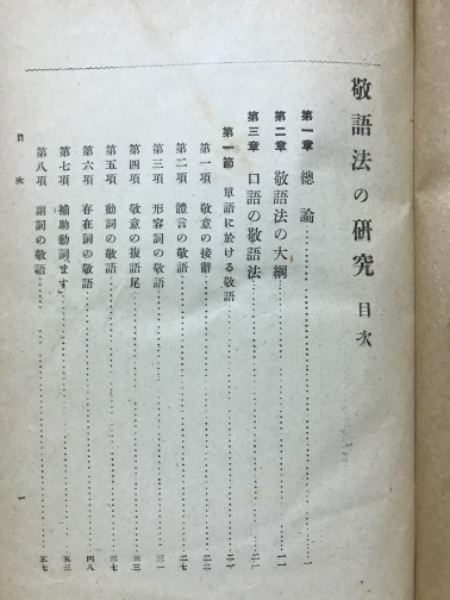 敬語法の研究 目次
第一章 總論……一
第二章 敬語法の大綱……一一
第三章 口語の敬語法……二一
第一節 單語に於ける敬語……二一
第一項 敬意の接辭……二二
第二項 體言の敬語……二七
第三項 形容詞の敬語……三一
第四項 敬意の複語尾……三三
第五項 動詞の敬語……三七
第六項 存在詞の敬語……四八
第七項 補助動詞「ます」……五三
第八項 副詞の敬語……五七
目次
一